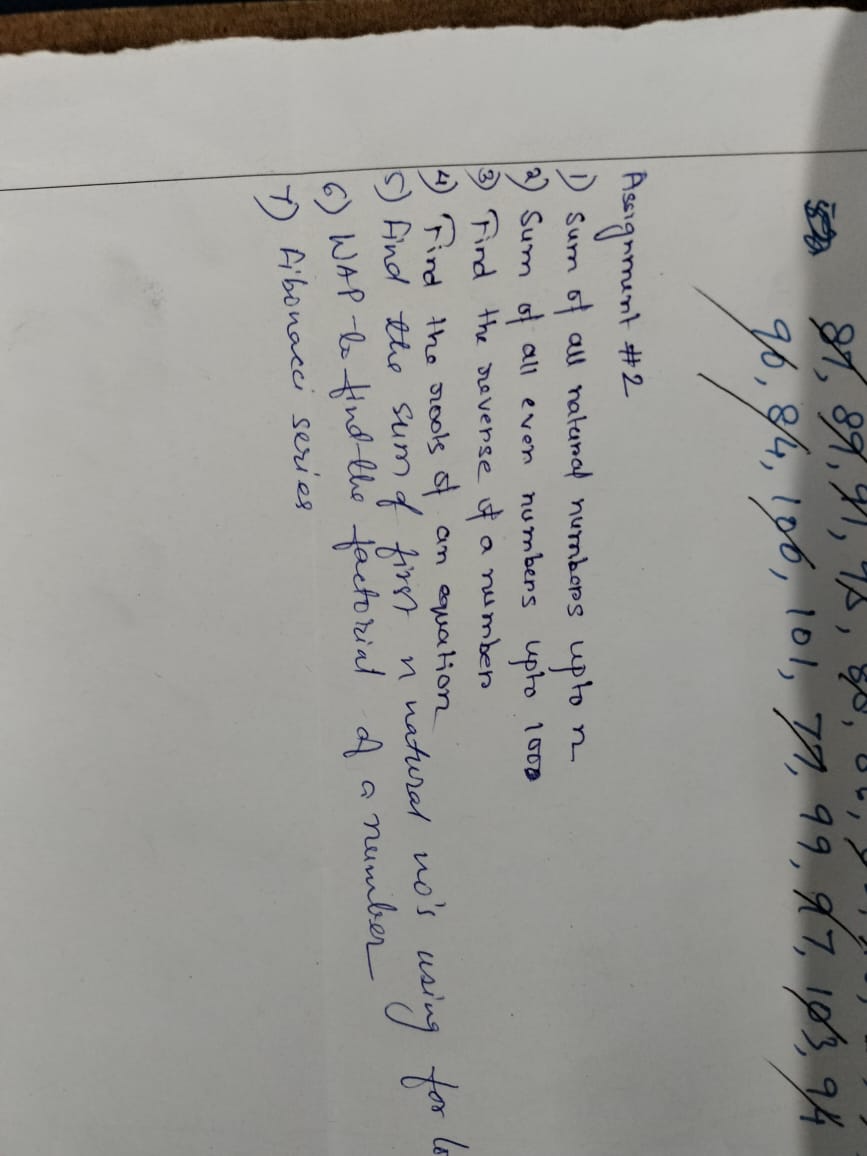 87, 89, 91,
90, 84, 106, 101, 77, 99, 97, 103, 94
Assignment #2
1) Sum of all natural numbers upto n
2) Sum of all even numbers upto 1000
3) Find the reverse of a number
4) Find the roots of an equation
5) find the sum of first n natural no's using for
6) WAP to find the factorial of a number
7) fibonacci series